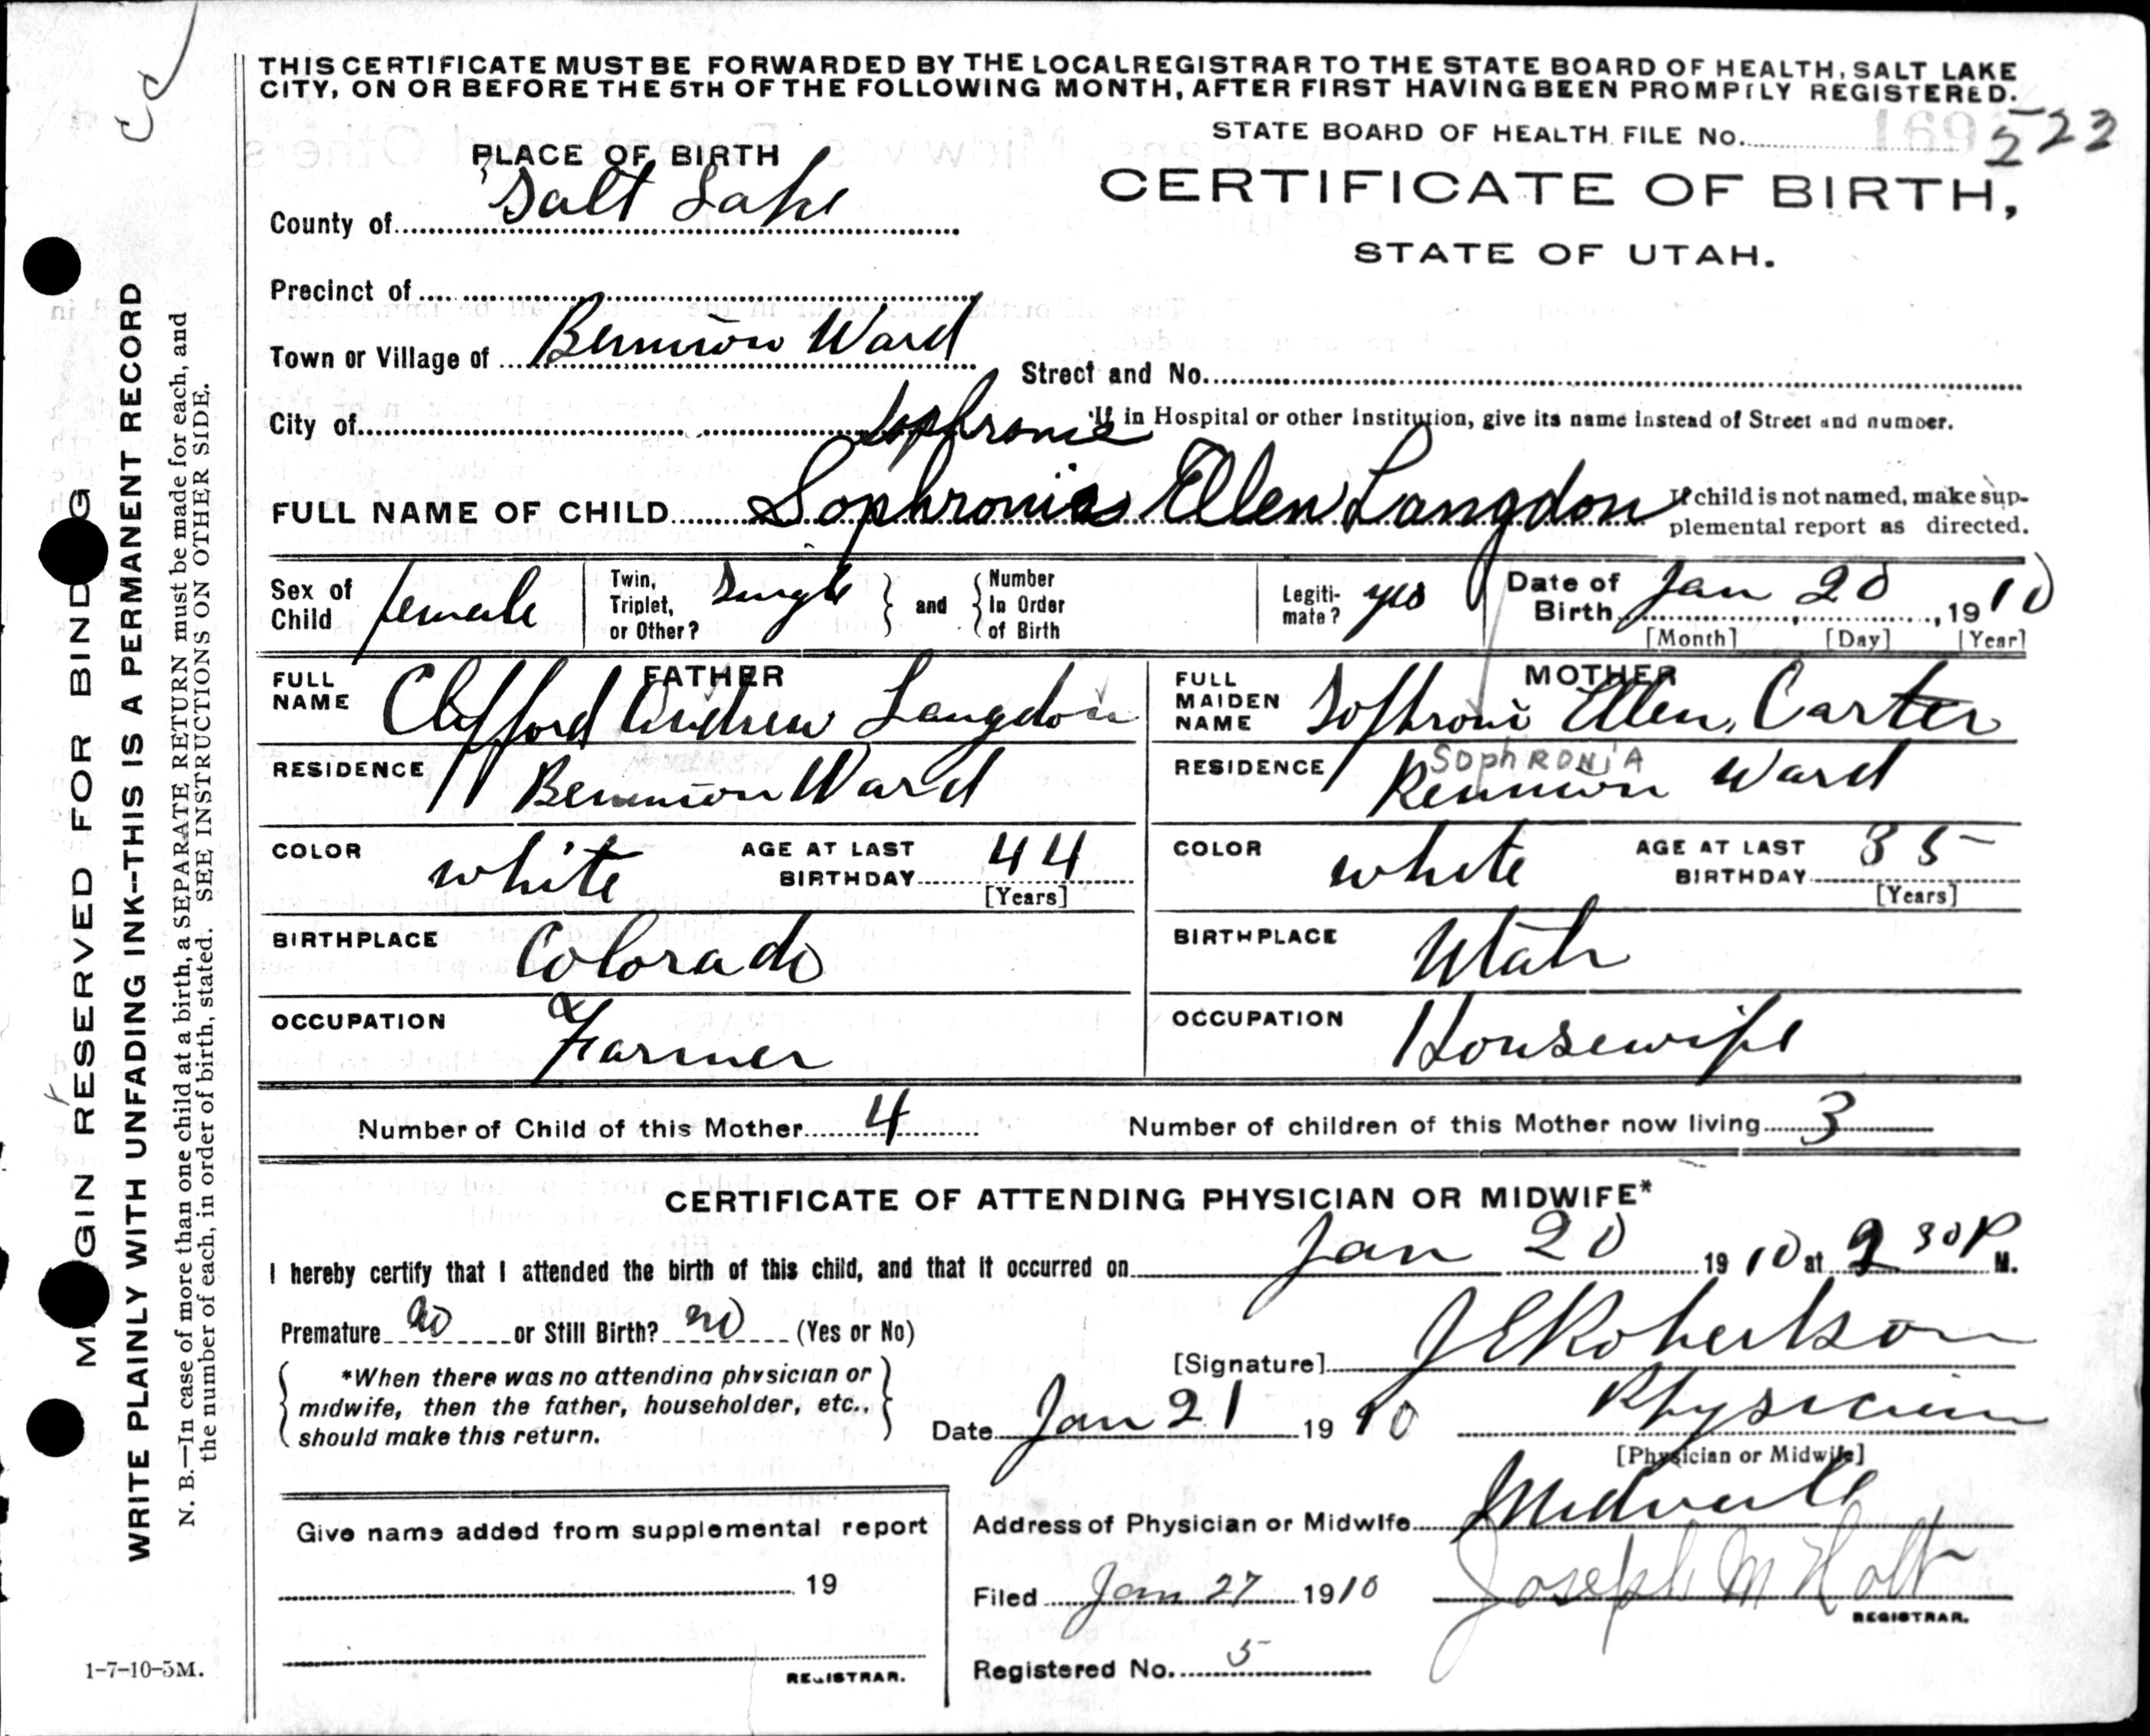 THIS CERTIFICATE MUST BE FORWARDED BY THE LOCAL REGISTRAR TO THE STATE BOARD OF HEALTH, SALT LAKE
CITY, ON OR BEFORE THE 5TH OF THE FOLLOWING MONTH, AFTER FIRST HAVING BEEN PROMPTLY REGISTERED.
STATE BOARD OF HEALTH FILE No. 522
PLACE OF BIRTH
CERTIFICATE OF BIRTH,
STATE OF UTAH.
County of Salt Lake
Precinct of
Town or Village of Bennion Ward
Street and No.
City of
If in Hospital or other Institution, give its name instead of Street and number.
Sophronie
FULL NAME OF CHILD Sophronia Ellen Langdon
If child is not named, make sup-
plemental report as directed.
Sex of Child female
Twin, Triplet, or Other? Single and Number In Order of Birth
Legiti-mate? yes
Date of Birth Jan 20, 1910
[Month] [Day] [Year]
FATHER
FULL NAME Clifford Andrew Langdon
RESIDENCE Bennion Ward
COLOR white AGE AT LAST BIRTHDAY 44
[Years]
BIRTHPLACE Colorado
OCCUPATION Farmer
MOTHER
FULL MAIDEN NAME Soffroni Ellen Carter
SOPhRONiA
RESIDENCE Bennion Ward
COLOR white AGE AT LAST BIRTHDAY 35
[Years]
BIRTHPLACE Utah
OCCUPATION Housewife
Number of Child of this Mother 4
Number of children of this Mother now living 3
CERTIFICATE OF ATTENDING PHYSICIAN OR MIDWIFE*
I hereby certify that I attended the birth of this child, and that it occurred on Jan 20 1910 at 2 30 P M.
Premature no or Still Birth? no (Yes or No)
*When there was no attending physician or
midwife, then the father, householder, etc.,
should make this return.
[Signature] J E Robertson
Date Jan 21 1910 Physician
[Physician or Midwife]
Give name added from supplemental report
19
REGISTRAR.
Address of Physician or Midwife Midvale
Filed Jan 27 1910 Joseph M Holt
REGISTRAR.
Registered No. 5
MARGIN RESERVED FOR BINDING
WRITE PLAINLY WITH UNFADING INK--THIS IS A PERMANENT RECORD
N. B.—In case of more than one child at a birth, a SEPARATE RETURN must be made for each, and
the number of each, in order of birth, stated. SEE INSTRUCTIONS ON OTHER SIDE.
1-7-10-5M.